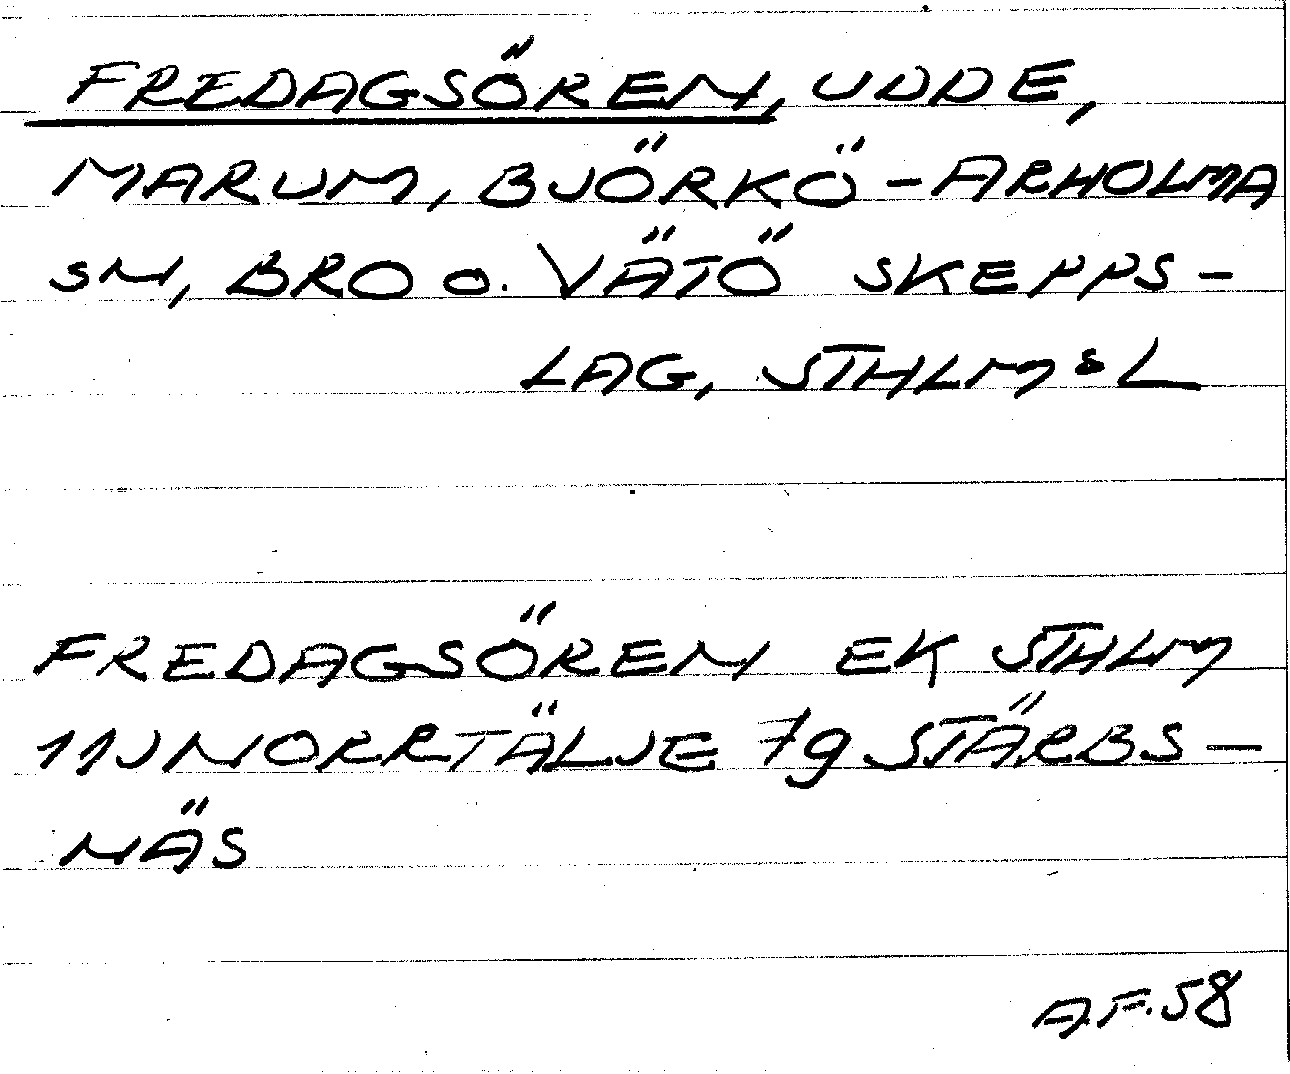 FREDAGSÖREN, UDDE,
MARUM, BJÖRKÖ-ARHOLMA
SN, BRO o. VÄTÖ SKEPPS-
LAG, STHLMS L
FREDAGSÖREN EK STHLM
11J NORRTÄLJE 7g STÄRBS-
NÄS
A.F. 58